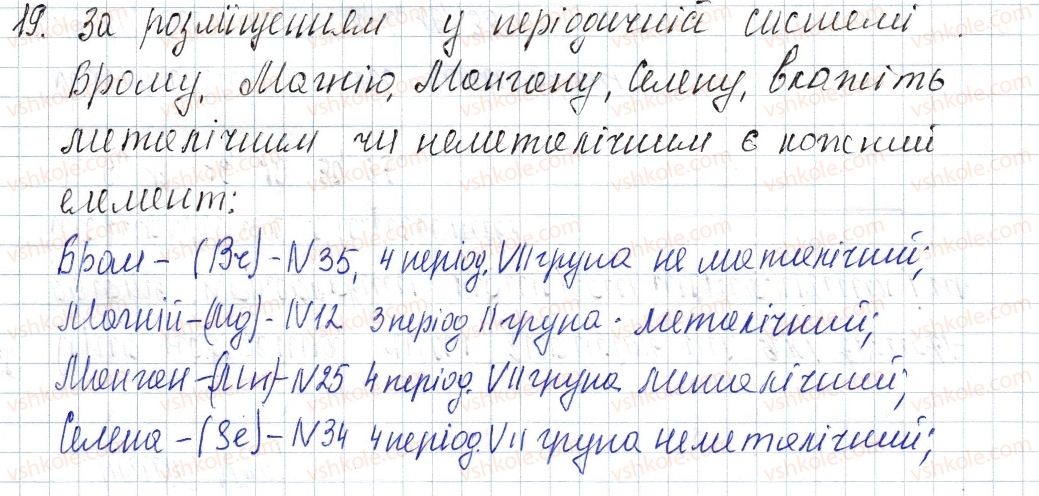 19. За розміщенням у періодичній системі
Брому, Магнію, Мангану, Селену, вкажіть
металічним чи неметалічним є кожний
елемент:
Бром - (Br) - N35, 4 період. VII група не металічний;
Магній - (Mg) - N12 3 період II група. металічний;
Манган - (Mn) - N25 4 період. VII група металічний;
Селена - (Se) - N34 4 період. VII група неметалічний;